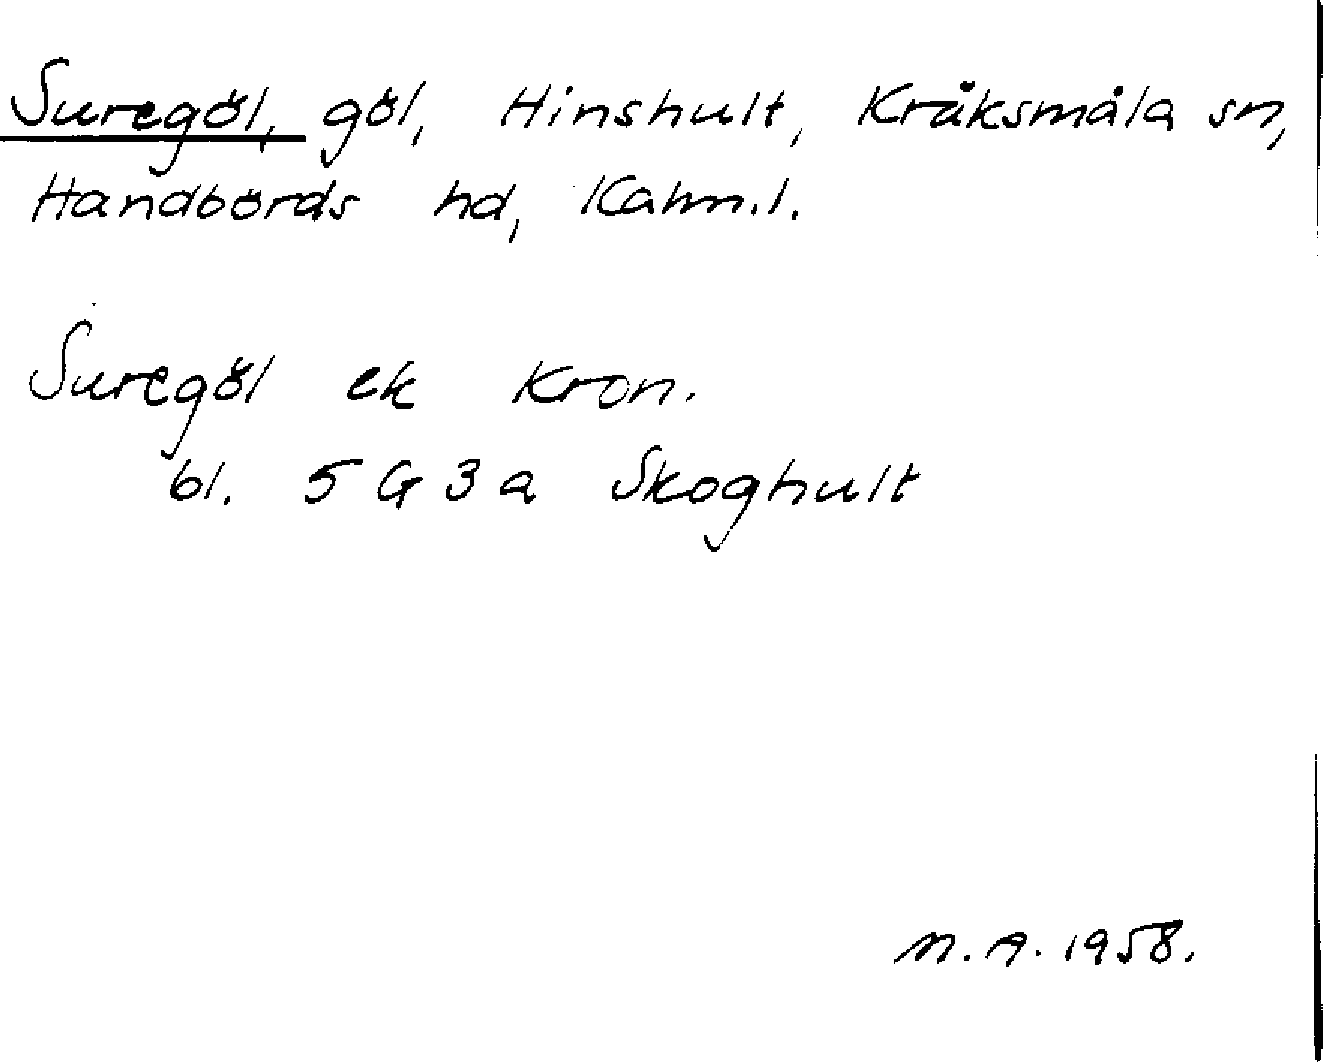 Suregöl, göl, Hinshult, Kråksmåla sn,
Handbörds hd, Kalm.l.
Suregöl ek Kron.
bl. 5 G 3 a Skoghult
M.A. 1958.